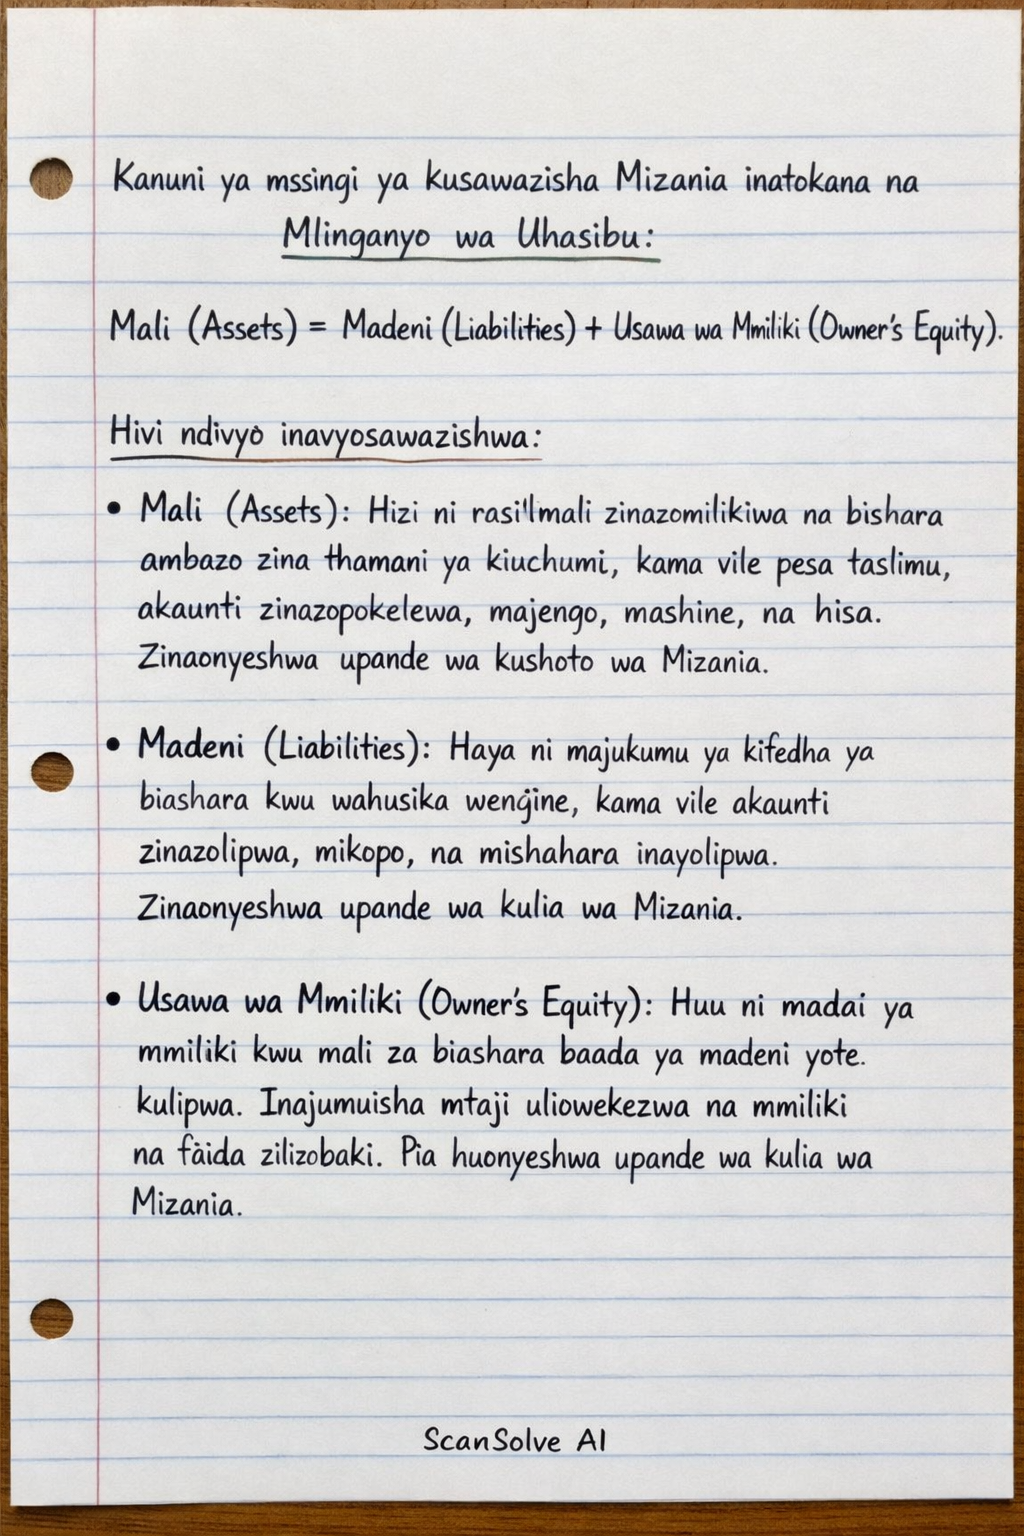 Kanuni ya mssingi ya kusawazisha Mizania inatokana na
Mlinganyo wa Uhasibu:
Mali (Assets) = Madeni (Liabilities) + Usawa wa Mmiliki (Owner's Equity).
Hivi ndivyo inavyosawazishwa:
• Mali (Assets): Hizi ni rasi'lmali zinazomilikiwa na bishara
ambazo zina thamani ya kiuchumi, kama vile pesa taslimu,
akaunti zinazopokelewa, majengo, mashine, na hisa.
Zinaonyeshwa upande wa kushoto wa Mizania.
• Madeni (Liabilities): Haya ni majukumu ya kifedha ya
biashara kwu wahusika wengine, kama vile akaunti
zinazolipwa, mikopo, na mishahara inayolipwa.
Zinaonyeshwa upande wa kulia wa Mizania.
• Usawa wa Mmiliki (Owner's Equity): Huu ni madai ya
mmiliki kwu mali za biashara baada ya madeni yote.
kulipwa. Inajumuisha mtaji uliowekezwa na mmiliki
na faida zilizobaki. Pia huonyeshwa upande wa kulia wa
Mizania.
ScanSolve AI